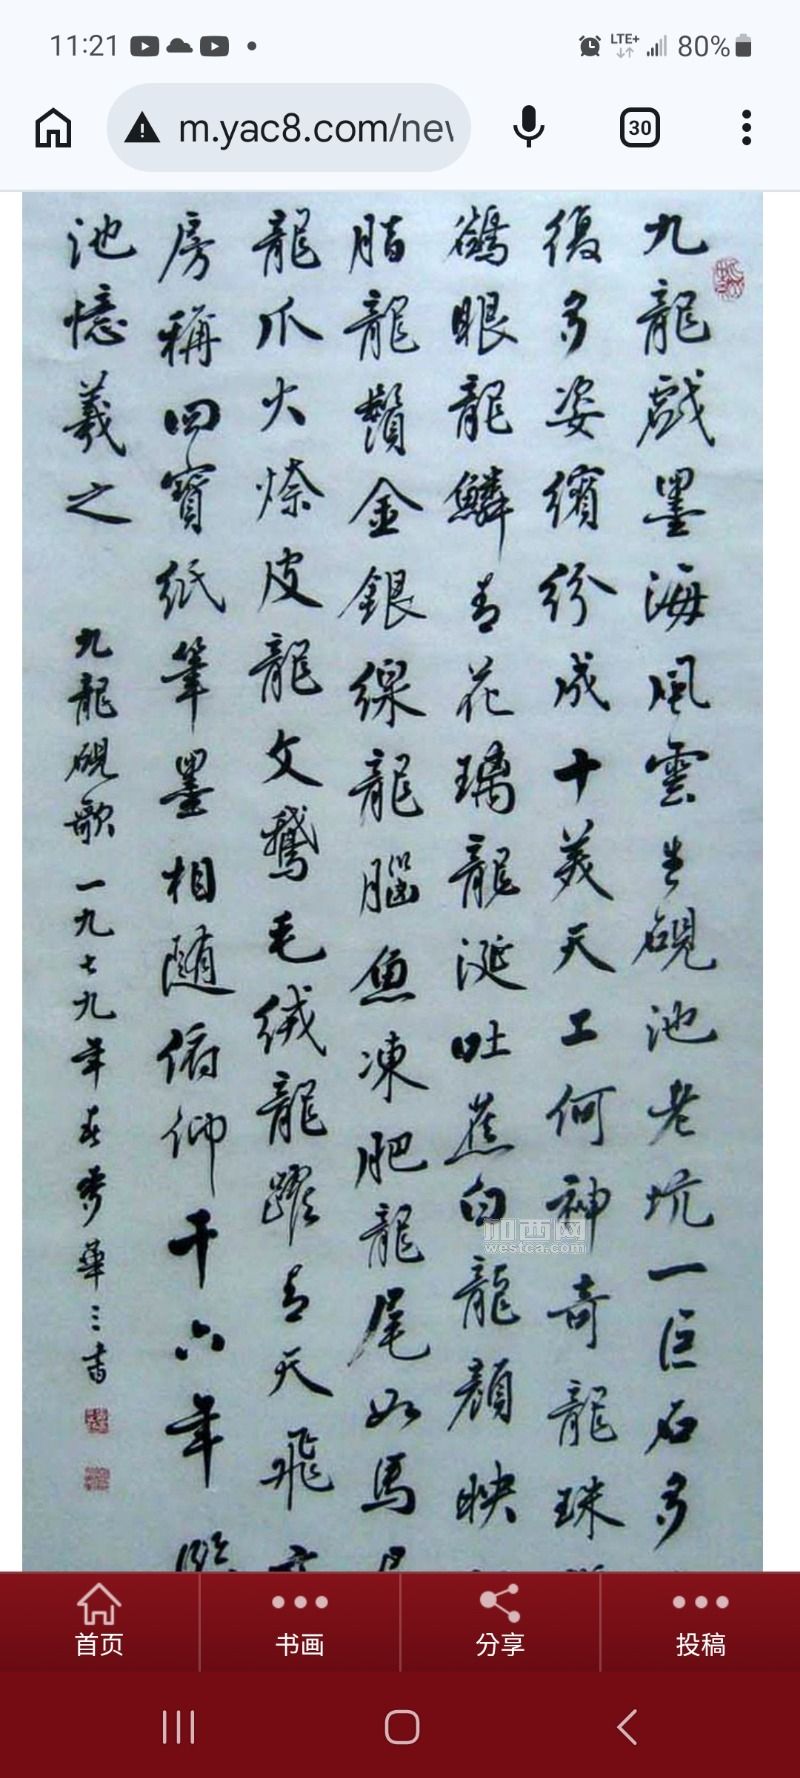 11:21
LTE+
80%
m.yac8.com/nev
30
九龍戲墨海風雲生硯池老坑一巨石多
復多姿繽紛成十美天工何神奇龍珠
鵒眼龍鱗青花璃龍涎吐蕉白龍顏映
脂龍鬚金銀線龍腦魚凍肥龍尾如馬尾
龍爪火捺皮龍文鵝毛絨龍躍青天飛
房稱四寶紙筆墨相随俯仰千六年臨
池憶羲之
九龍硯歌一九七九年春麥華三書
加西网
westca.com
首页
书画
分享
投稿